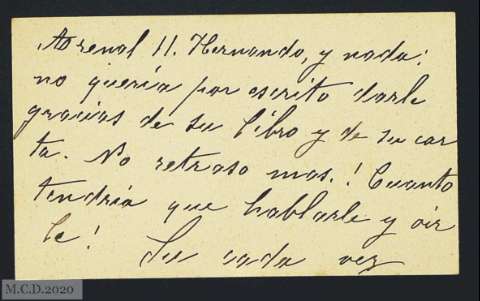 Arenal 11. Hernando, y nada:
no quería por escrito darle
gracias de su libro y de su car
ta. No retraso mas. ! Cuanto
tendría que hablarle y oir
le! Su cada vez
M.C.D.2020